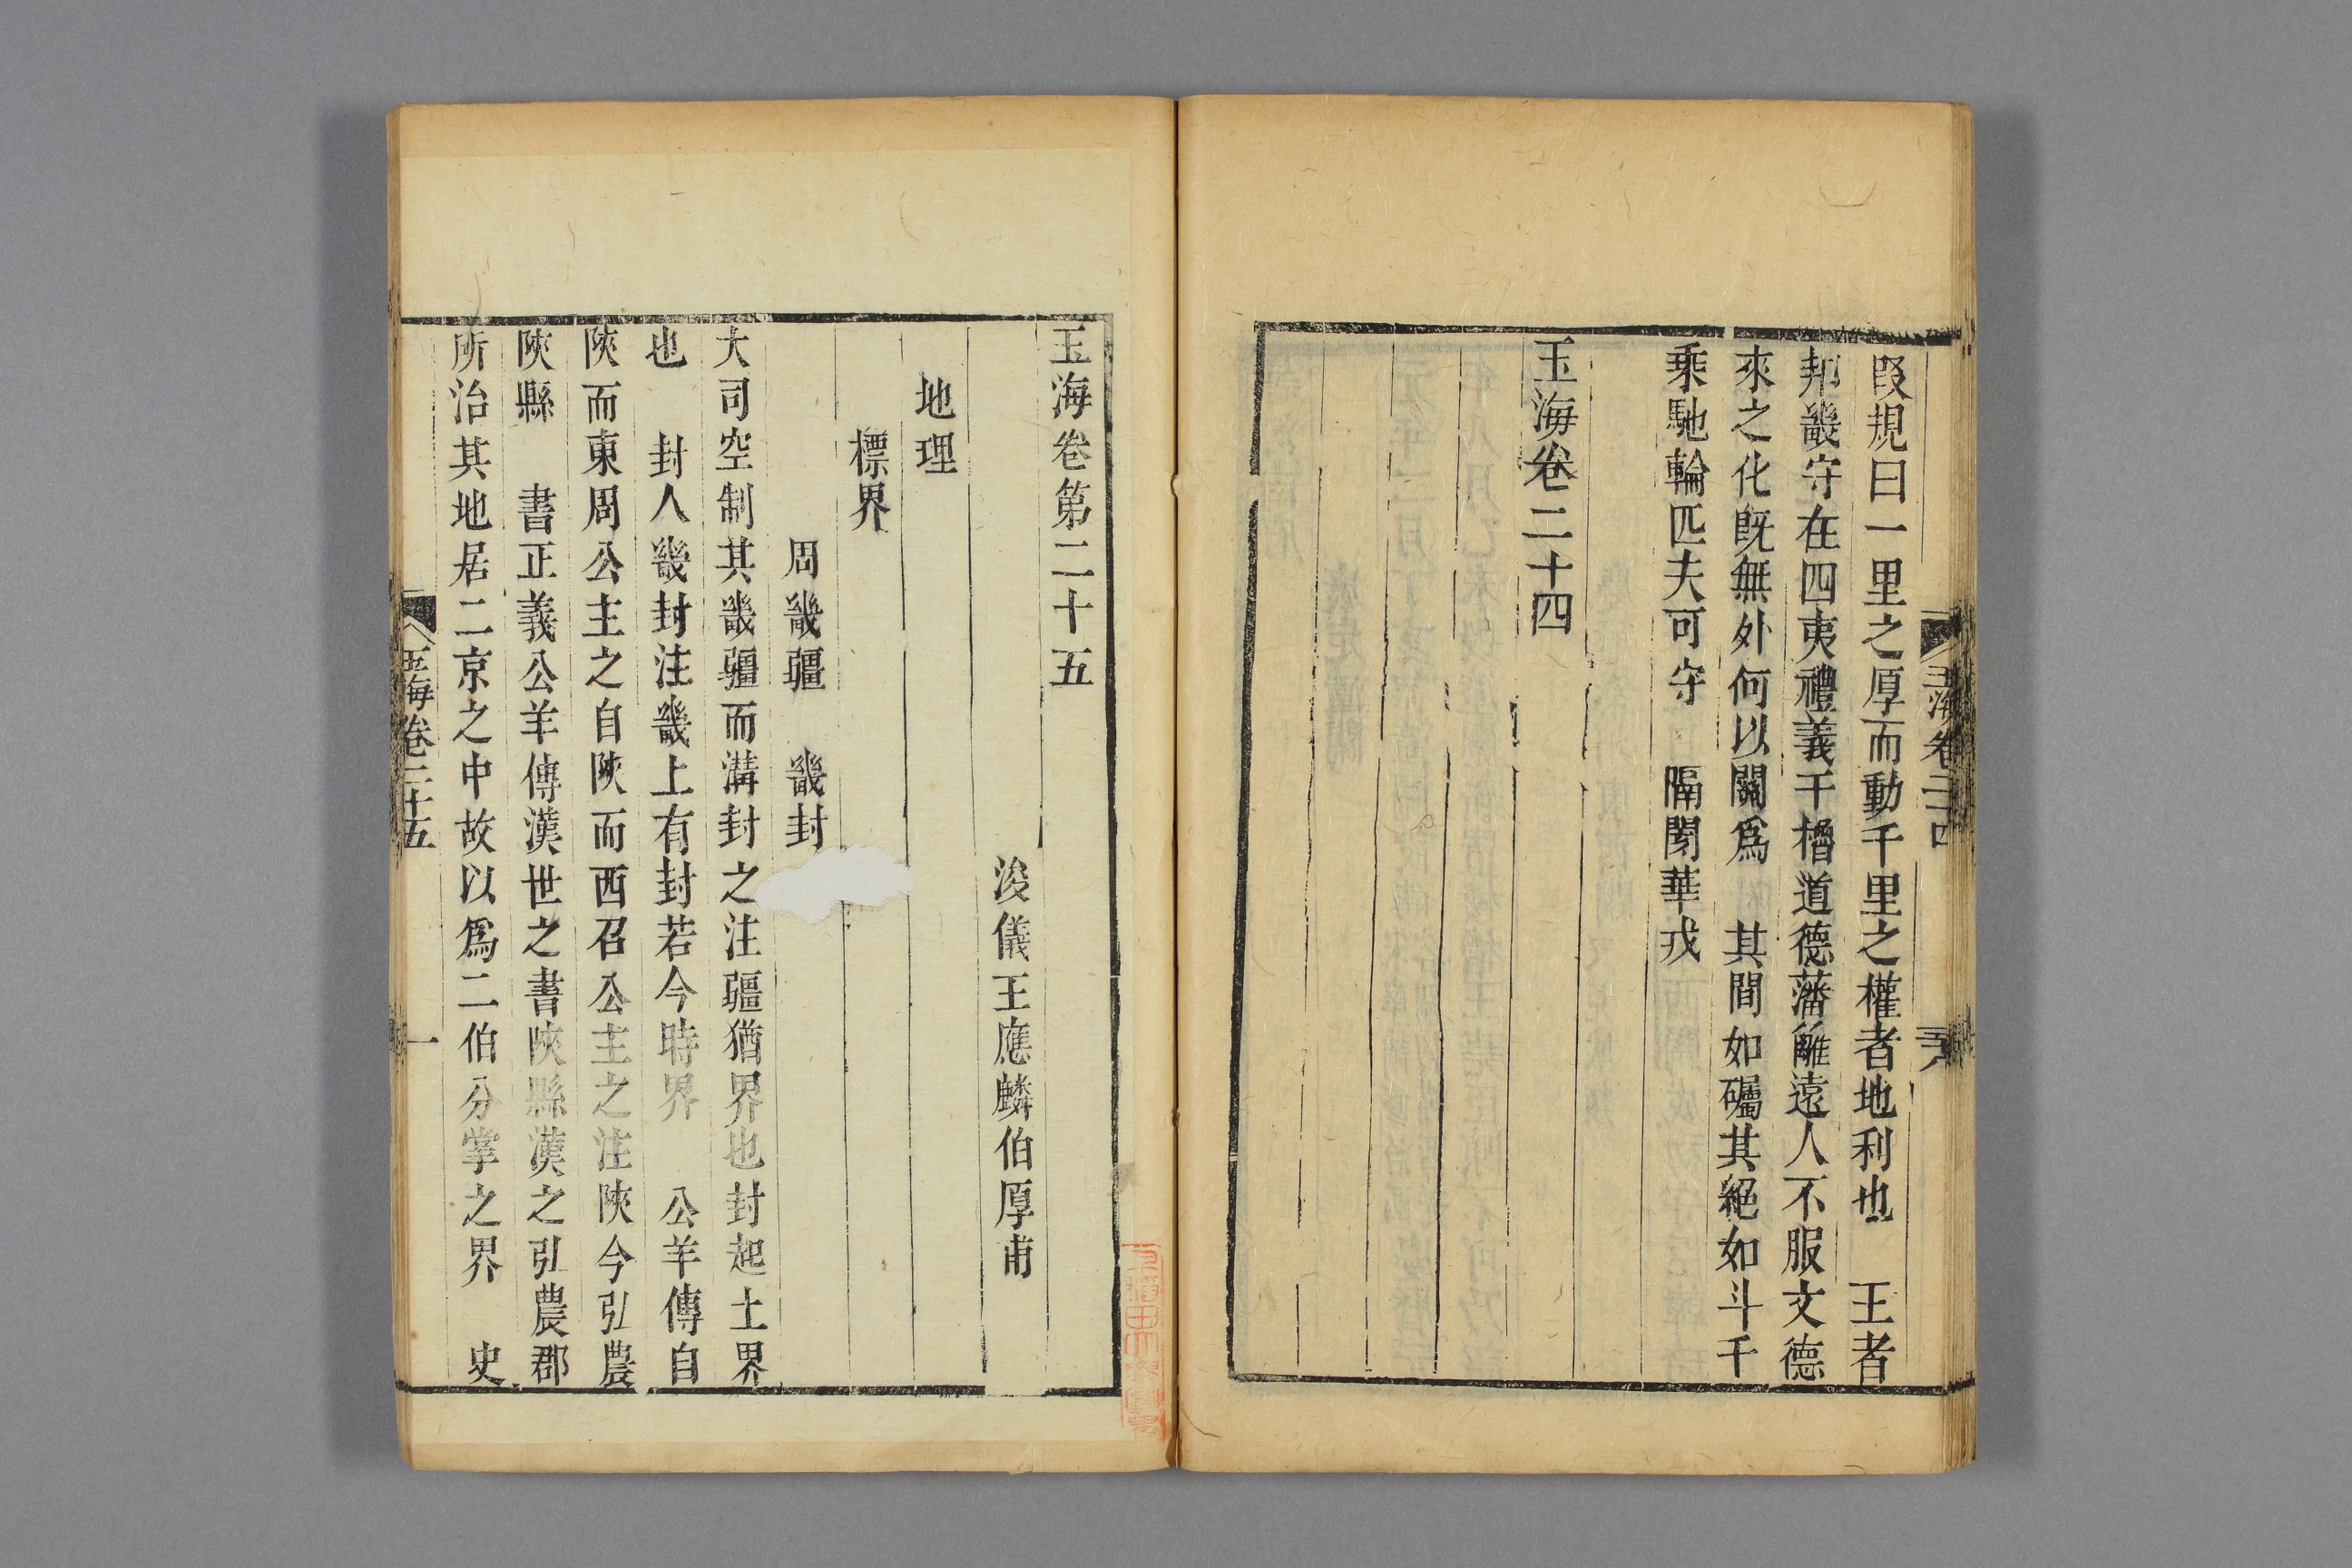 段規曰一里之厚而動千里之權者地利也　王者
邦畿守在四夷禮義干櫓道德藩籬遠人不服文德
來之化旣無外何以關爲　其間如礪其絕如斗千
乘馳輪匹夫可守　隔閡華戎
玉海卷二十四
玉海卷二十四
玉海卷第二十五
浚儀王應麟伯厚甫
地理
標界
周畿疆　畿封
大司空制其畿疆而溝封之注疆猶界也封起土界
也　封人畿封注畿上有封若今時界　公羊傳自
陝而東周公主之自陝而西召公主之注陝今弘農
陝縣　書正義公羊傳漢世之書陝縣漢之弘農郡
所治其地居二京之中故以爲二伯分掌之界　史
玉海卷二十五
一